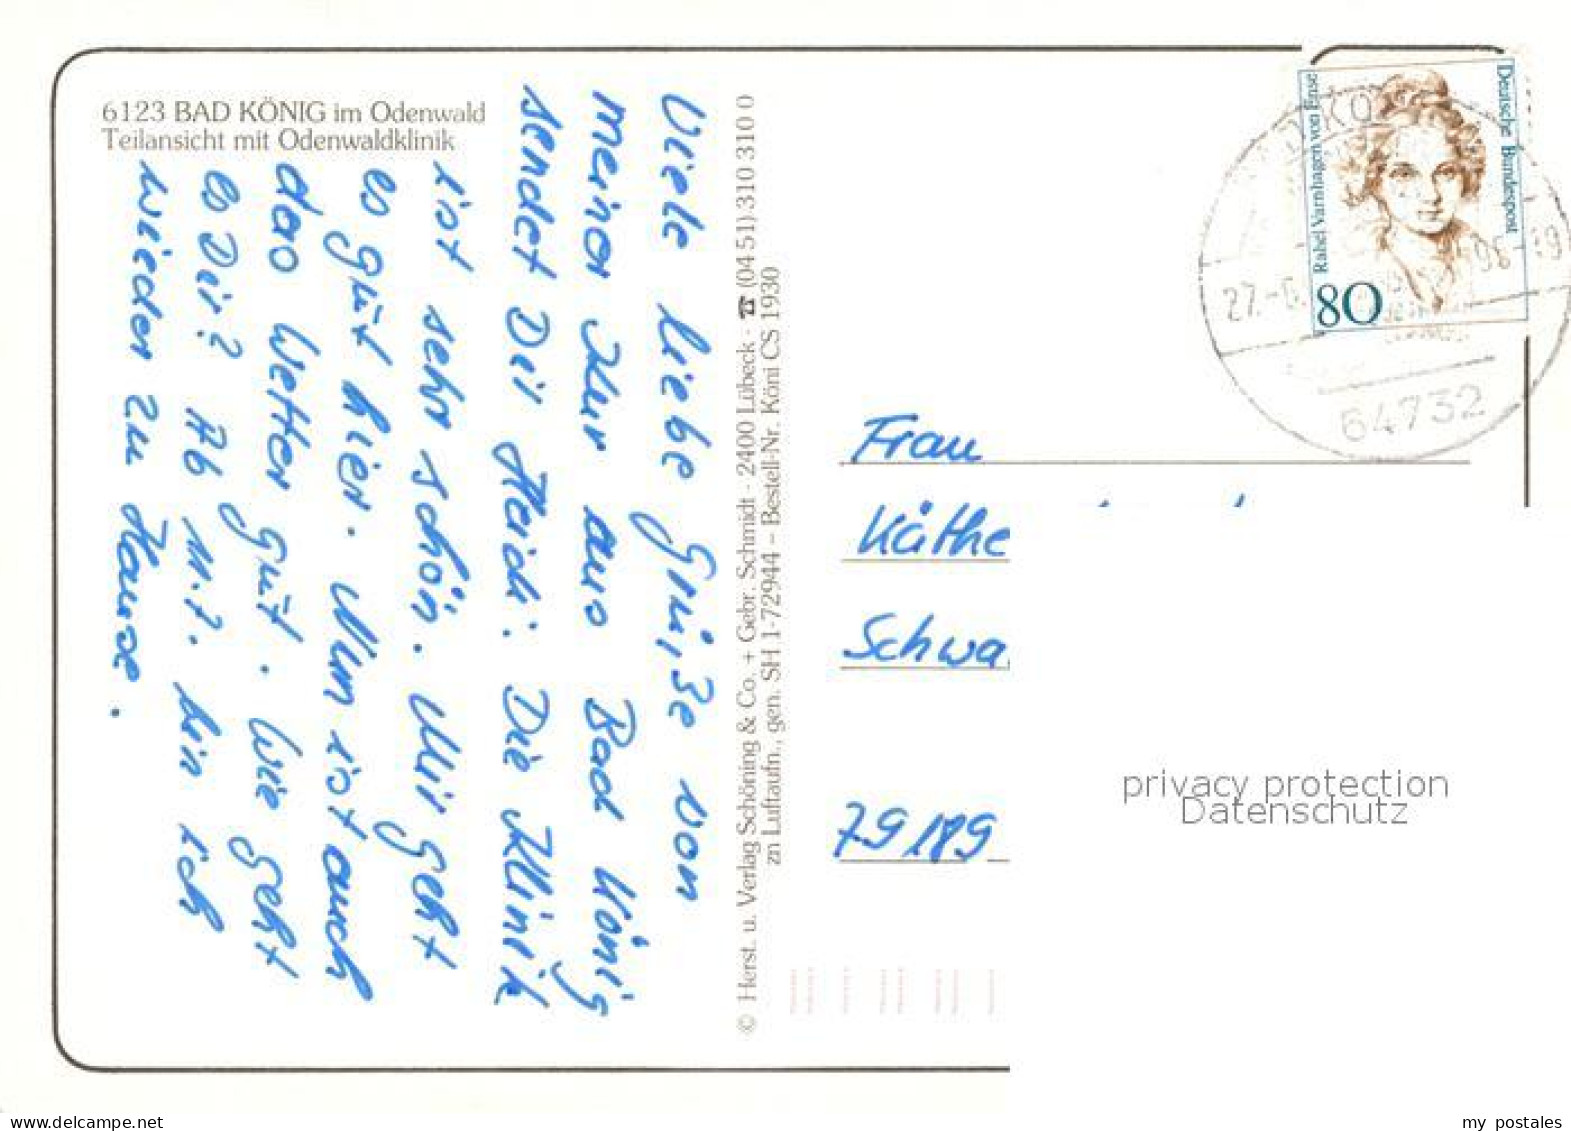 6123 BAD KÖNIG im Odenwald
Teilansicht mit Odenwaldklinik
Viele liebe Grüße von
meiner Kur aus Bad König
sendet Dir Heidi. Die Klinik
ist sehr schön. Mir geht
es gut hier. Nun ist auch
das Wetter gut. Wie geht
es Dir? Ab 11.7. bin ich
wieder zu Hause.
© Herst. u. Verlag Schöning & Co. + Gebr. Schmidt - 2400 Lübeck - ☎ (04 51) 310 310 0
zn Luftaufn., gen. SH 1-72944 – Bestell-Nr. Köni CS 1930
Deutsche Bundespost
Rahel Varnhagen von Ense
80
27.-6.
95-19
64732
Frau
Käthe
Schwa
79189
privacy protection
Datenschutz
www.delcampe.net
my_postales